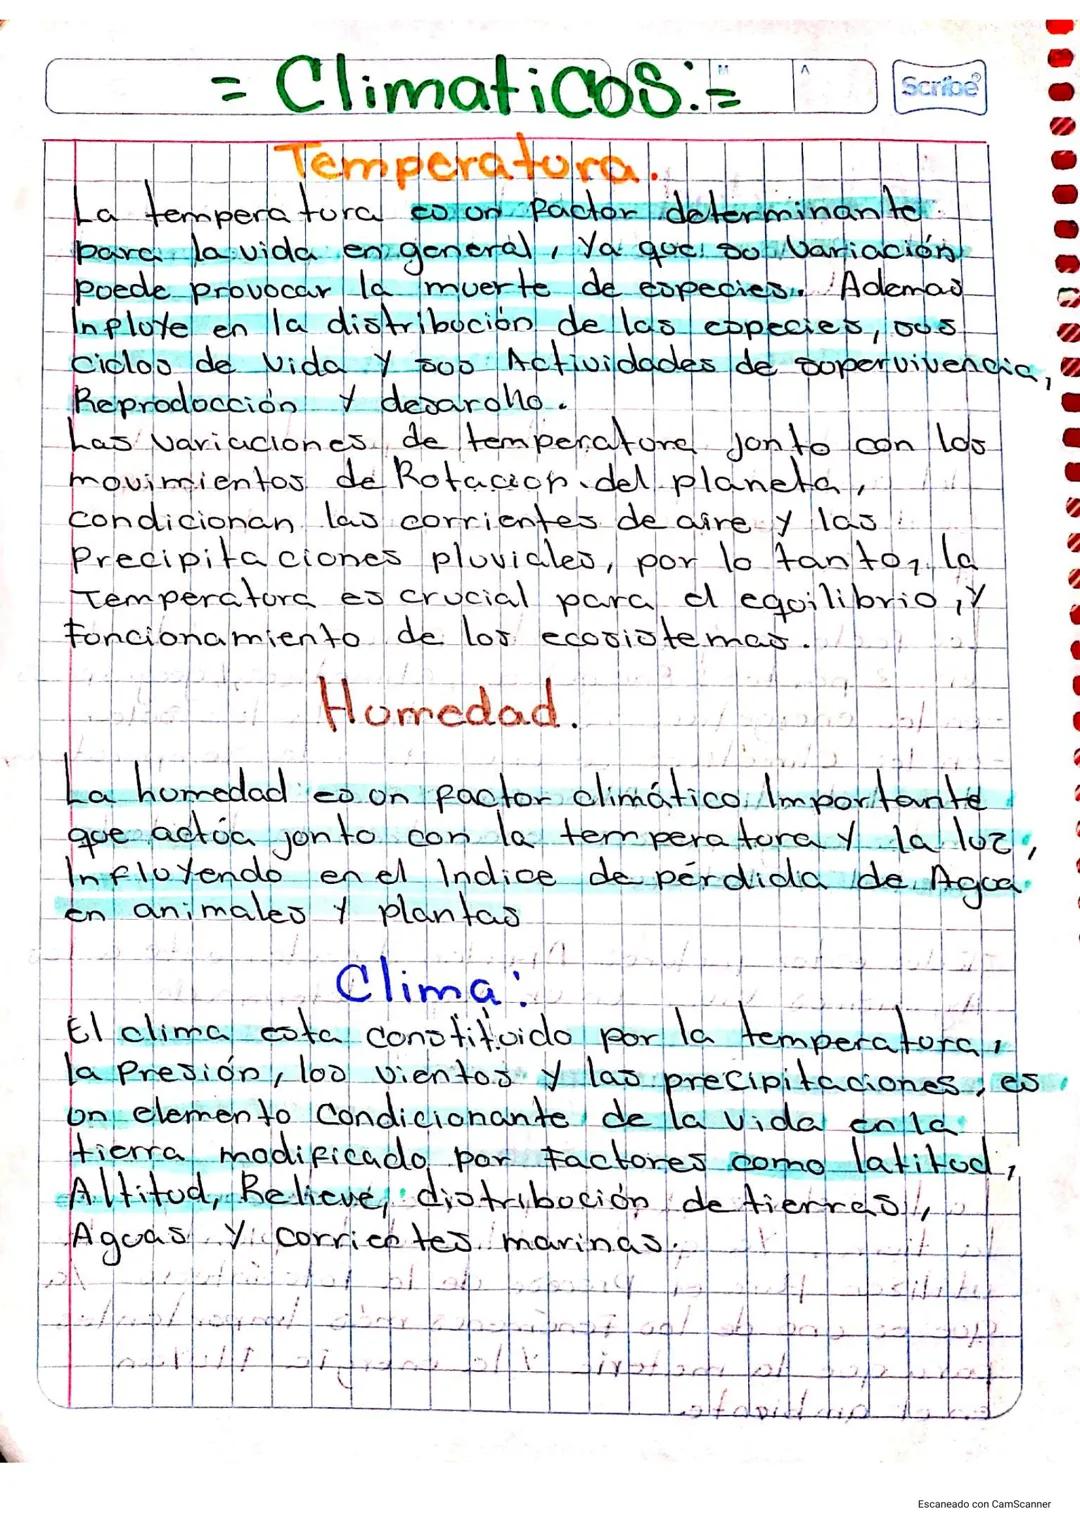 = Climaticos: =
M
A
Scribe
Temperatura.
La temperatura es un factor determinante
para la vida en general, Ya que su Variación
puede provocar la muerte de especies. Ademas
Influye en la distribución de las especies, sus
Ciclos de Vida y sus Actividades de supervivencia,
Reproducción y desarollo.
Las Variaciones de temperatura junto con los
movimientos de Rotacion del planeta,
condicionan las corrientes de aire y las
Precipitaciones pluviales, por lo tanto, la
Temperatura es crucial para el equilibrio, y
Funcionamiento de los ecosistemas.
Humedad.
La humedad es un factor climático Importante
que actúa junto con la temperatura y la luz,
Influyendo en el Indice de pérdida de Agua
en animales y plantas
Clima:
El clima esta constituido por la temperatura,
la Presión, los vientos y las precipitaciones, es
un elemento Condicionante de la vida en la
tierra modificado por Factores como latitud,
Altitud, Relieve, distribución de tierras,
Aguas y corrientes marinas.
Escaneado con CamScanner